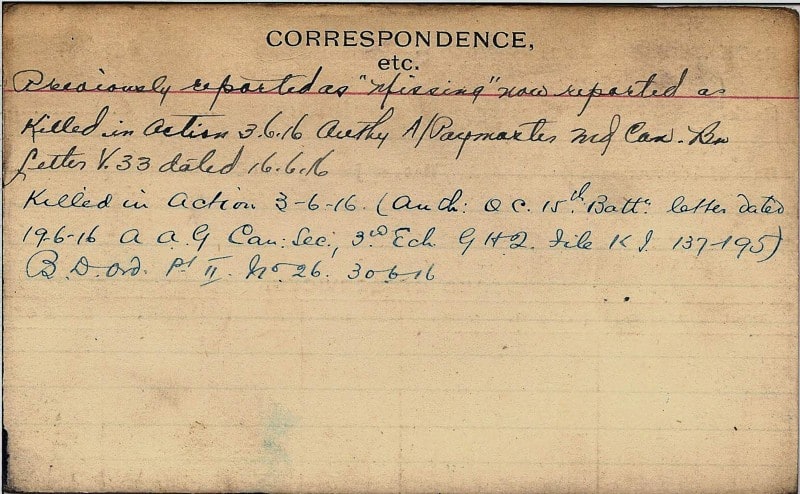 CORRESPONDENCE,
etc.
Previously reported as "Missing" now reported as
Killed in Action 3.6.16 Authy A/Paymaster Can. Bn
Letter V.33 dated 16.6.16
Killed in Action 3-6-16. (Auth: O C. 15th Batt: letter dated
19-6-16 A A.G Can: Sec:, 3rd Ech G H Q. File K I. 137-195)
B. D. Ord. Pt II. No 26. 30-6-16